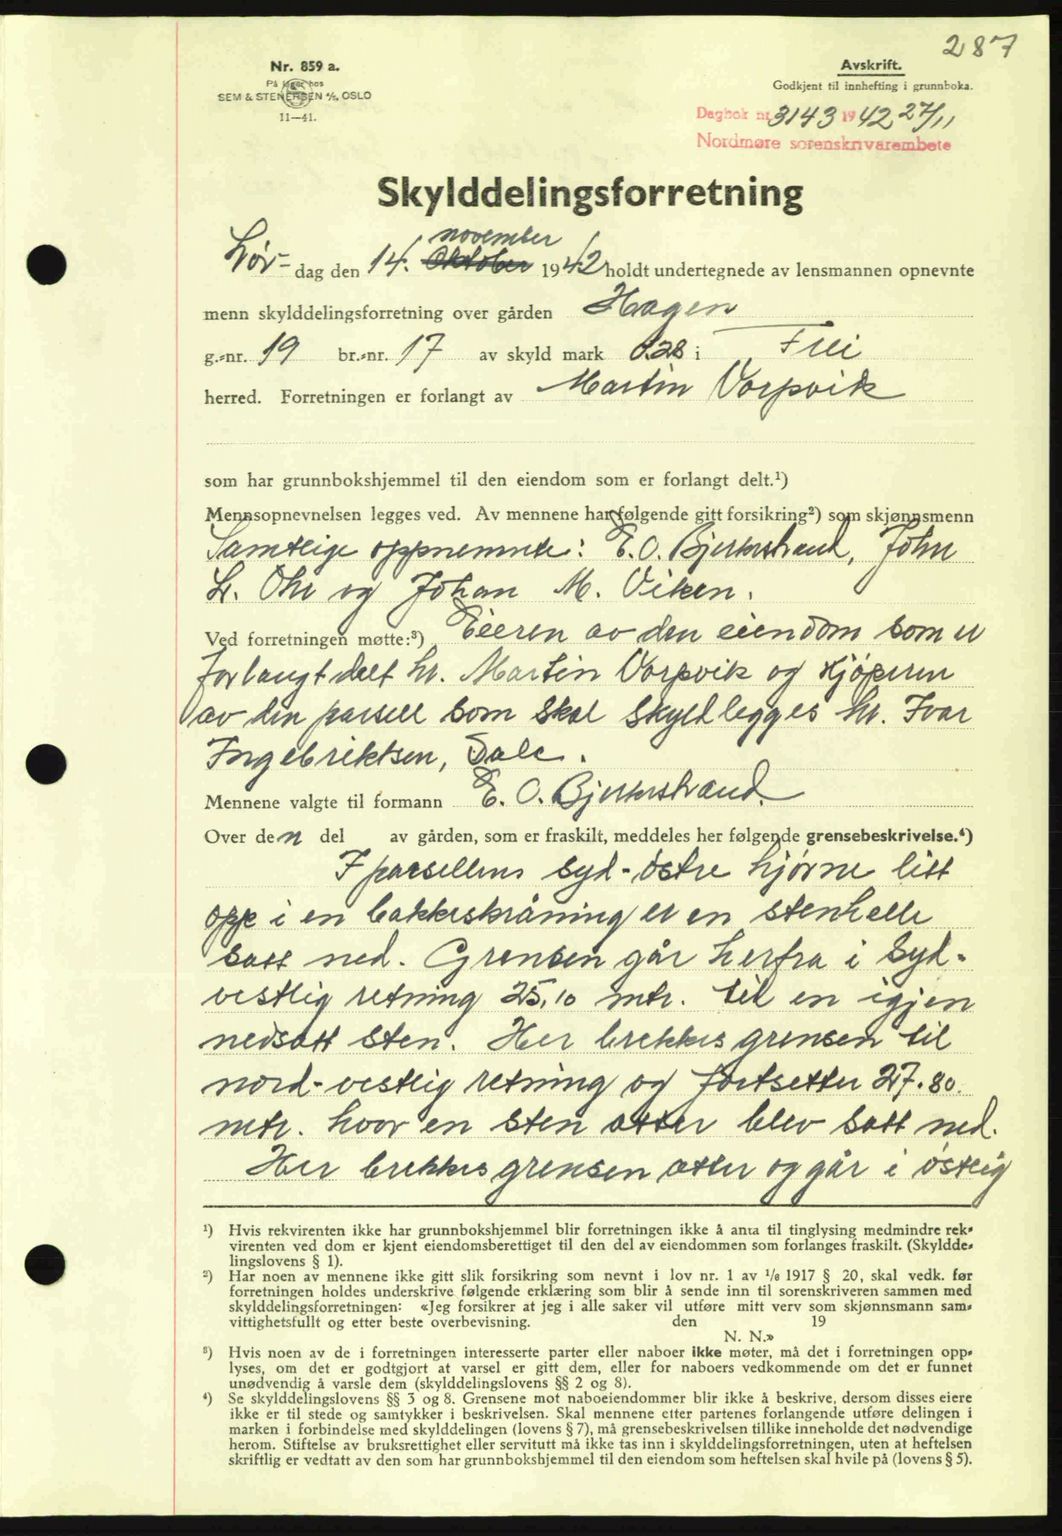 287
Nr. 859 a.
På lager hos
SEM & STENERSEN A/S, OSLO
11—41.
Avskrift.
Godkjent til innhefting i grunnboka.
Dagbok nr. 3143 1942 27/11
Nordmøre sorenskrivarembete
Skylddelingsforretning
november
Lør- dag den 14. Oktober 1942 holdt undertegnede av lensmannen opnevnte
menn skylddelingsforretning over gården Hagen
g.-nr. 19 br.-nr. 17 av skyld mark 0.28 i Frei
herred. Forretningen er forlangt av Martin Vorpvik
som har grunnbokshjemmel til den eiendom som er forlangt delt.¹)
Mennsopnevnelsen legges ved. Av mennene har følgende gitt forsikring²) som skjønnsmenn
Samtlige oppnemnte: E. O. Bjerkestrand, John
L. Ohr og Johan M. Viken.
Ved forretningen møtte:³) Eieren av den eiendom som er
forlangt delt hr. Martin Vorpvik og kjøperen
av den parsell som skal skyldlegges hr. Ivar
Ingebriktsen, Dale.
Mennene valgte til formann E. O. Bjerkestrand.
Over den del av gården, som er fraskilt, meddeles her følgende grensebeskrivelse.⁴)
I parsellens syd-østre hjørne litt
opp i en bakkeskråning er en stenhelle
satt ned. Grensen går herfra i syd-
vestlig retning 25,10 mtr. til en igjen
nedsatt sten. Her brekkes grensen til
nord-vestlig retning og fortsetter 27.80
mtr. hvor en sten atter blev satt ned.
Her brekkes grensen atter og går i østlig
¹) Hvis rekvirenten ikke har grunnbokshjemmel blir forretningen ikke å anta til tinglysing medmindre rek-
virenten ved dom er kjent eiendomsberettiget til den del av eiendommen som forlanges fraskilt. (Skyldde-
lingslovens § 1).
²) Har noen av mennene ikke gitt slik forsikring som nevnt i lov nr. 1 av 1/6 1917 § 20, skal vedk. før
forretningen holdes underskrive følgende erklæring som blir å sende inn til sorenskriveren sammen med
skylddelingsforretningen: «Jeg forsikrer at jeg i alle saker vil utføre mitt verv som skjønnsmann sam-
vittighetsfullt og etter beste overbevisning. den 19
N. N.»
³) Hvis noen av de i forretningen interesserte parter eller naboer ikke møter, må det i forretningen opp-
lyses, om det er godtgjort at varsel er gitt dem, eller for naboers vedkommende om det er funnet
unødvendig å varsle dem (skylddelingslovens §§ 2 og 8).
⁴) Se skylddelingslovens §§ 3 og 8. Grensene mot naboeiendommer blir ikke å beskrive, dersom disses eiere
ikke er til stede og samtykker i beskrivelsen. Skal mennene etter partenes forlangende utføre delingen i
marken i forbindelse med skylddelingen (lovens § 7), må grensebeskrivelsen tillike inneholde det nødvendige
herom. Stiftelse av bruksrettighet eller servitutt må ikke tas inn i skylddelingsforretningen, uten at heftelsen
skriftlig er vedtatt av den som har grunnbokshjemmel til den eiendom som heftelsen skal hvile på (lovens § 5).